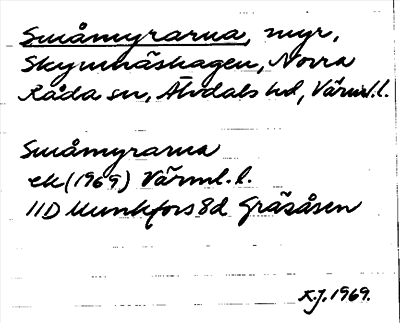 Småmyrarna, myr,
Skymnäshagen, Norra
Råda sn, Älvdals hd, Värml.l.
Småmyrarna
ek (1969) Värml.l.
11D Munkfors 8d Gräsåsen
K.J. 1969.